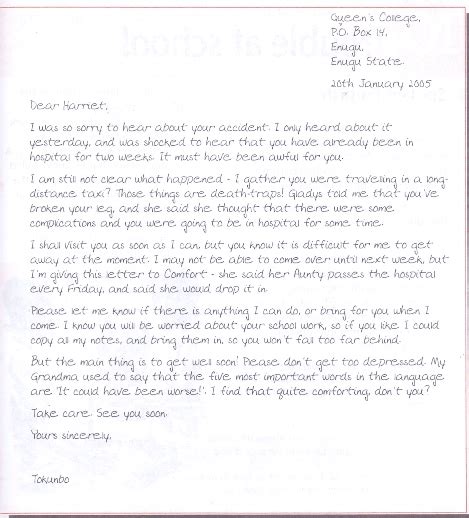 Queen's College,
P.O. Box 14,
Enugu,
Enugu State.
20th January 2005
Dear Harriet,
I was so sorry to hear about your accident. I only heard about it
yesterday, and was shocked to hear that you have already been in
hospital for two weeks. It must have been awful for you.
I am still not clear what happened - I gather you were travelling in a long-
distance taxi? Those things are death-traps! Gladys told me that you've
broken your leg, and she said she thought that there were some
complications and you were going to be in hospital for some time.
I shall visit you as soon as I can, but you know it is difficult for me to get
away at the moment. I may not be able to come over until next week, but
I'm giving this letter to Comfort - she said her Aunty passes the hospital
every Friday, and said she would drop it in.
Please let me know if there is anything I can do, or bring for you when I
come. I know you will be worried about your school work, so if you like I could
copy all my notes, and bring them in, so you won't fall too far behind.
But the main thing is to get well soon! Please don't get too depressed. My
Grandma used to say that the five most important words in the language
are 'It could have been worse!'. I find that quite comforting, don't you?
Take care. See you soon.
Yours sincerely,
Tokunbo